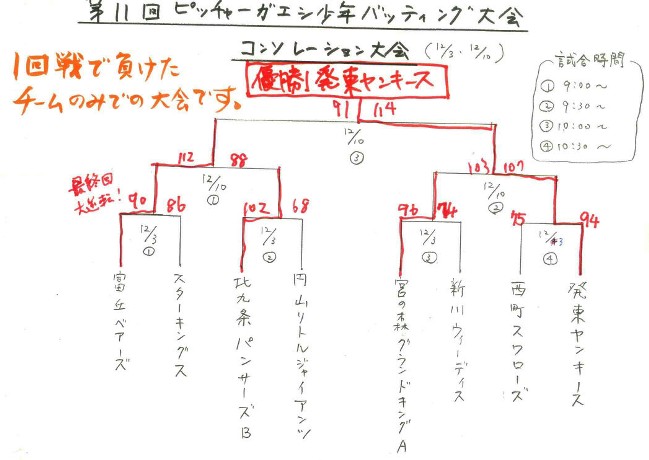 第11回 ピッチャーガエシ少年バッティング大会
コンソレーション大会 (12/3、12/10)
1回戦で負けた
チームのみでの大会です。
優勝! 発東ヤンキース
試合時間
① 9:00〜
② 9:30〜
③ 10:00〜
④ 10:30〜
91 114
12/10
③
112 88
12/10
①
103 107
12/10
②
最終回
大逆転!
90 86
12/3
①
102 68
12/3
②
96 74
12/3
③
75 94
12/3
④
富丘ベアーズ
スターキングス
北九条パンサーズB
円山リトルジャイアンツ
宮の森グランドキングA
新川ウィーディス
西町スワローズ
発東ヤンキース